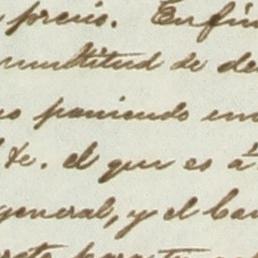 precio. En fin
multitud de de
poniendo en
te. el que es á
general, y el ba
para